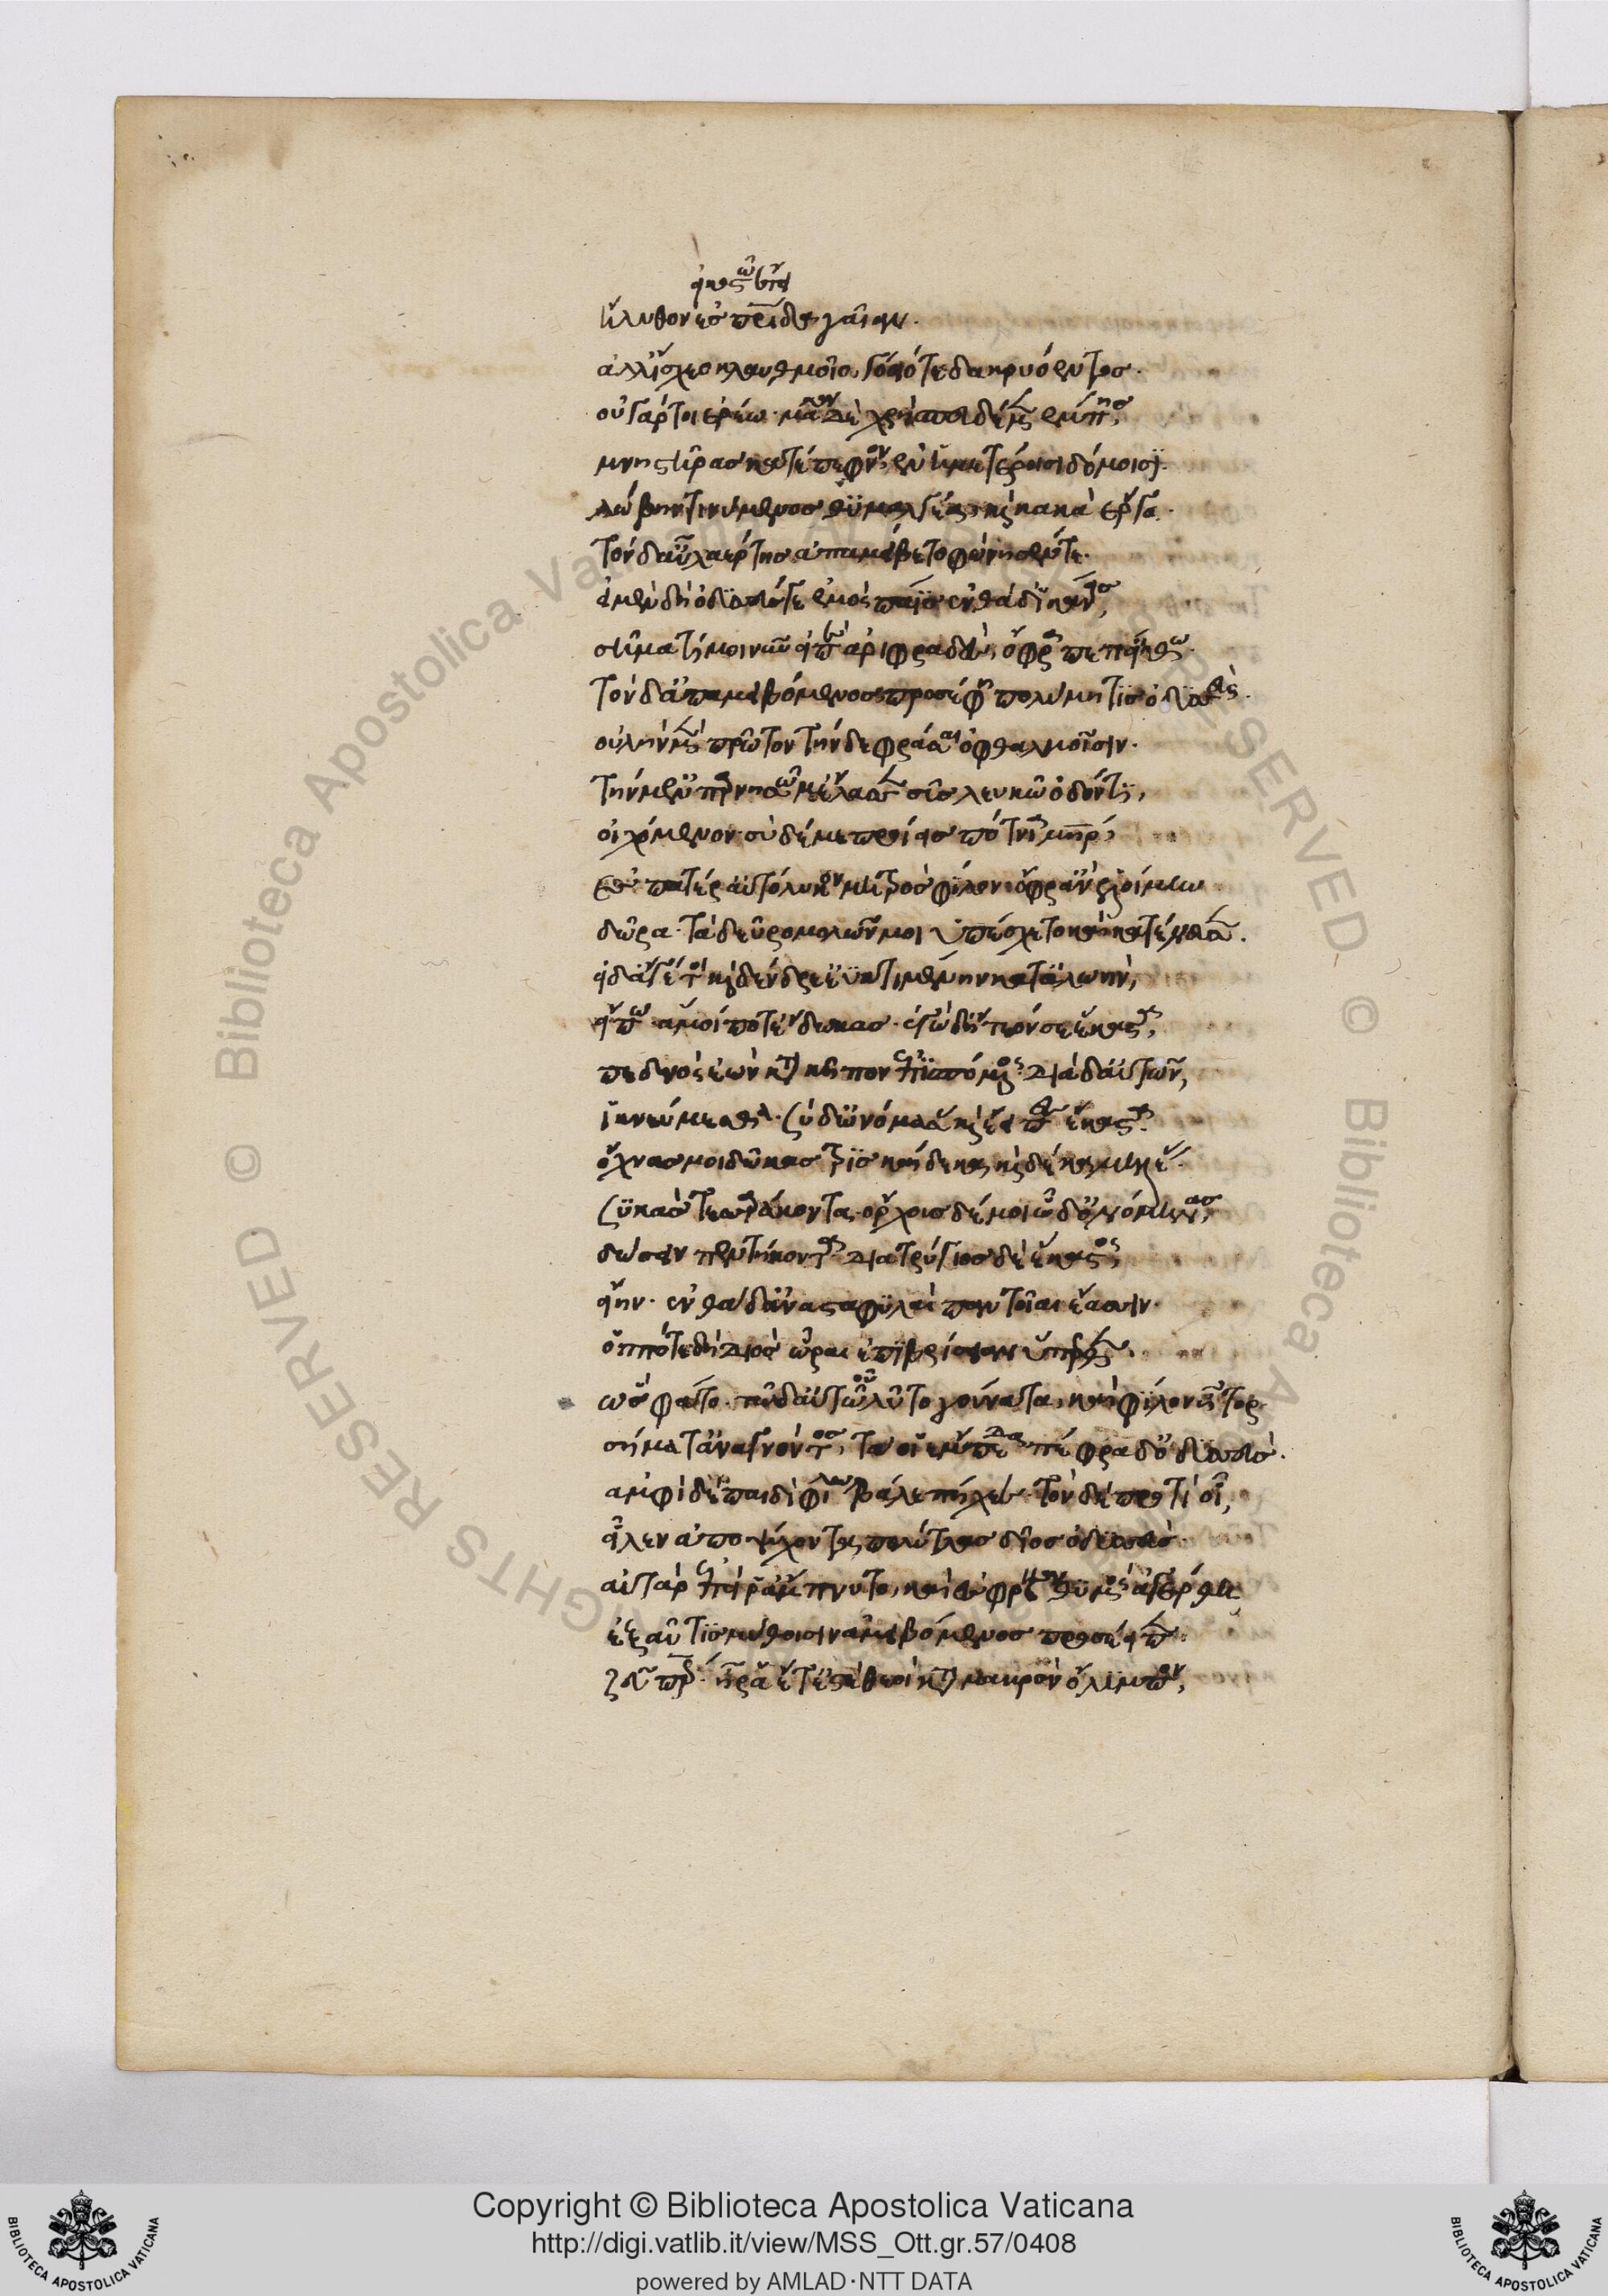 εἰκοστῷ ἔτει
ἤλυθον ἐσ πατρίδα γαῖαν.
ἀλλ' ἴσχεο κλαυθμοῖο, γόοιό τε δακρυόεντοσ.
οὐ γάρ τοι ἐρέω. μάλα δὲ χρὴ σπευδέμεν ἔμπησ,
μνηστῆρασ κατέπεφνον ἐν ἡμετέροισι δόμοισϊ.
λώβην τινύμενοσ θυμαλγέα, καὶ κακὰ ἔργα.
τὸν δ' αὖ λαέρτησ ἀπαμείβετο φώνησέν τε.
εἰ μὲν δὴ ὀδυσεύσ γε ἐμὸσ πάϊσ ἐνθάδ' ἱκάνεισ,
σῆμα τί μοι νῦν εἰπὲ ἀριφραδὲσ, ὄφρα πεποίθω.
τὸν δ' ἀπαμειβόμενοσ προσέφη πολύμητισ ὀδυσσεὺσ.
οὐλὴν μὲν πρῶτον τήνδε φράσαι ὀφθαλμοῖσιν.
τὴν ἐν παρνησῶ μ' ἔλασεν σῦσ λευκῶ ὀδόντι,
οἰχόμενον. σὺ δέ με προΐεισ πότνια μήτηρ,
ἐσ πατέρ' αὐτόλυκον μητρὸσ φίλον. ὄφρ' ἂν ἑλοίμην
δῶρα. τὰ δεῦρο μολὼν μοι ὑπέσχετο καὶ κατένευσεν.
εἰ δ' ἄγε τοι καὶ δένδρε' ἐϋκτιμένην κατ' ἀλωὴν,
εἴπω ἅ μοί ποτ' ἔδωκασ. ἐγὼ δ' ἤτεόν σε ἕκαστα,
παιδνὸσ ἐὼν κατὰ κῆπον ἐπισπόμενοσ. διὰ δ' αὐτῶν,
ἱκνεύμεσθα. σὺ δ' ὠνόμασασ καὶ ἔειπεσ ἕκαστα.
ὄγχνασ μοι δῶκασ τρισκαίδεκα, καὶ δέκα μηλέασ.
συκᾶσ τεσσαράκοντα. ὄρχουσ δέ μοι ὧδ' ὀνόμηνασ,
δώσειν πεντήκοντα. διατρύγιοσ δὲ ἕκαστοσ,
εἴην. ἔνθα δ' ἀνὰ σταφυλαὶ παντοῖαι ἔασιν.
ὁππότε δὴ διὸσ ὧραι ἐπιβρίσειαν ὕπερθεν.
ὣσ φάτο. τοῦ δ' αὐτοῦ λύτο γούνατα, καὶ φίλον ἦτορ.
σήματ' ἀναγνόντοσ, τά οἱ ἔμπεδα πέφραδ' ὀδυσσεύσ.
ἀμφὶ δὲ παιδὶ φίλω βάλε πήχεε. τὸν δὲ προτὶ οἷ,
εἷλεν ἀποψύχοντα, πολύτλασ δῖοσ ὀδυσσεὺσ.
αὐτὰρ ἐπεί ῥ' ἄμπνυτο, καὶ ἐσ φρένα θυμὸσ ἀγέρθη
ἐξαῦτισ μύθοισιν ἀμειβόμενοσ προσέειπεν.
ζεῦ πάτερ. ἦ ῥα ἔτ' ἐστὲ θεοὶ κατὰ μακρὸν ὄλυμπον,